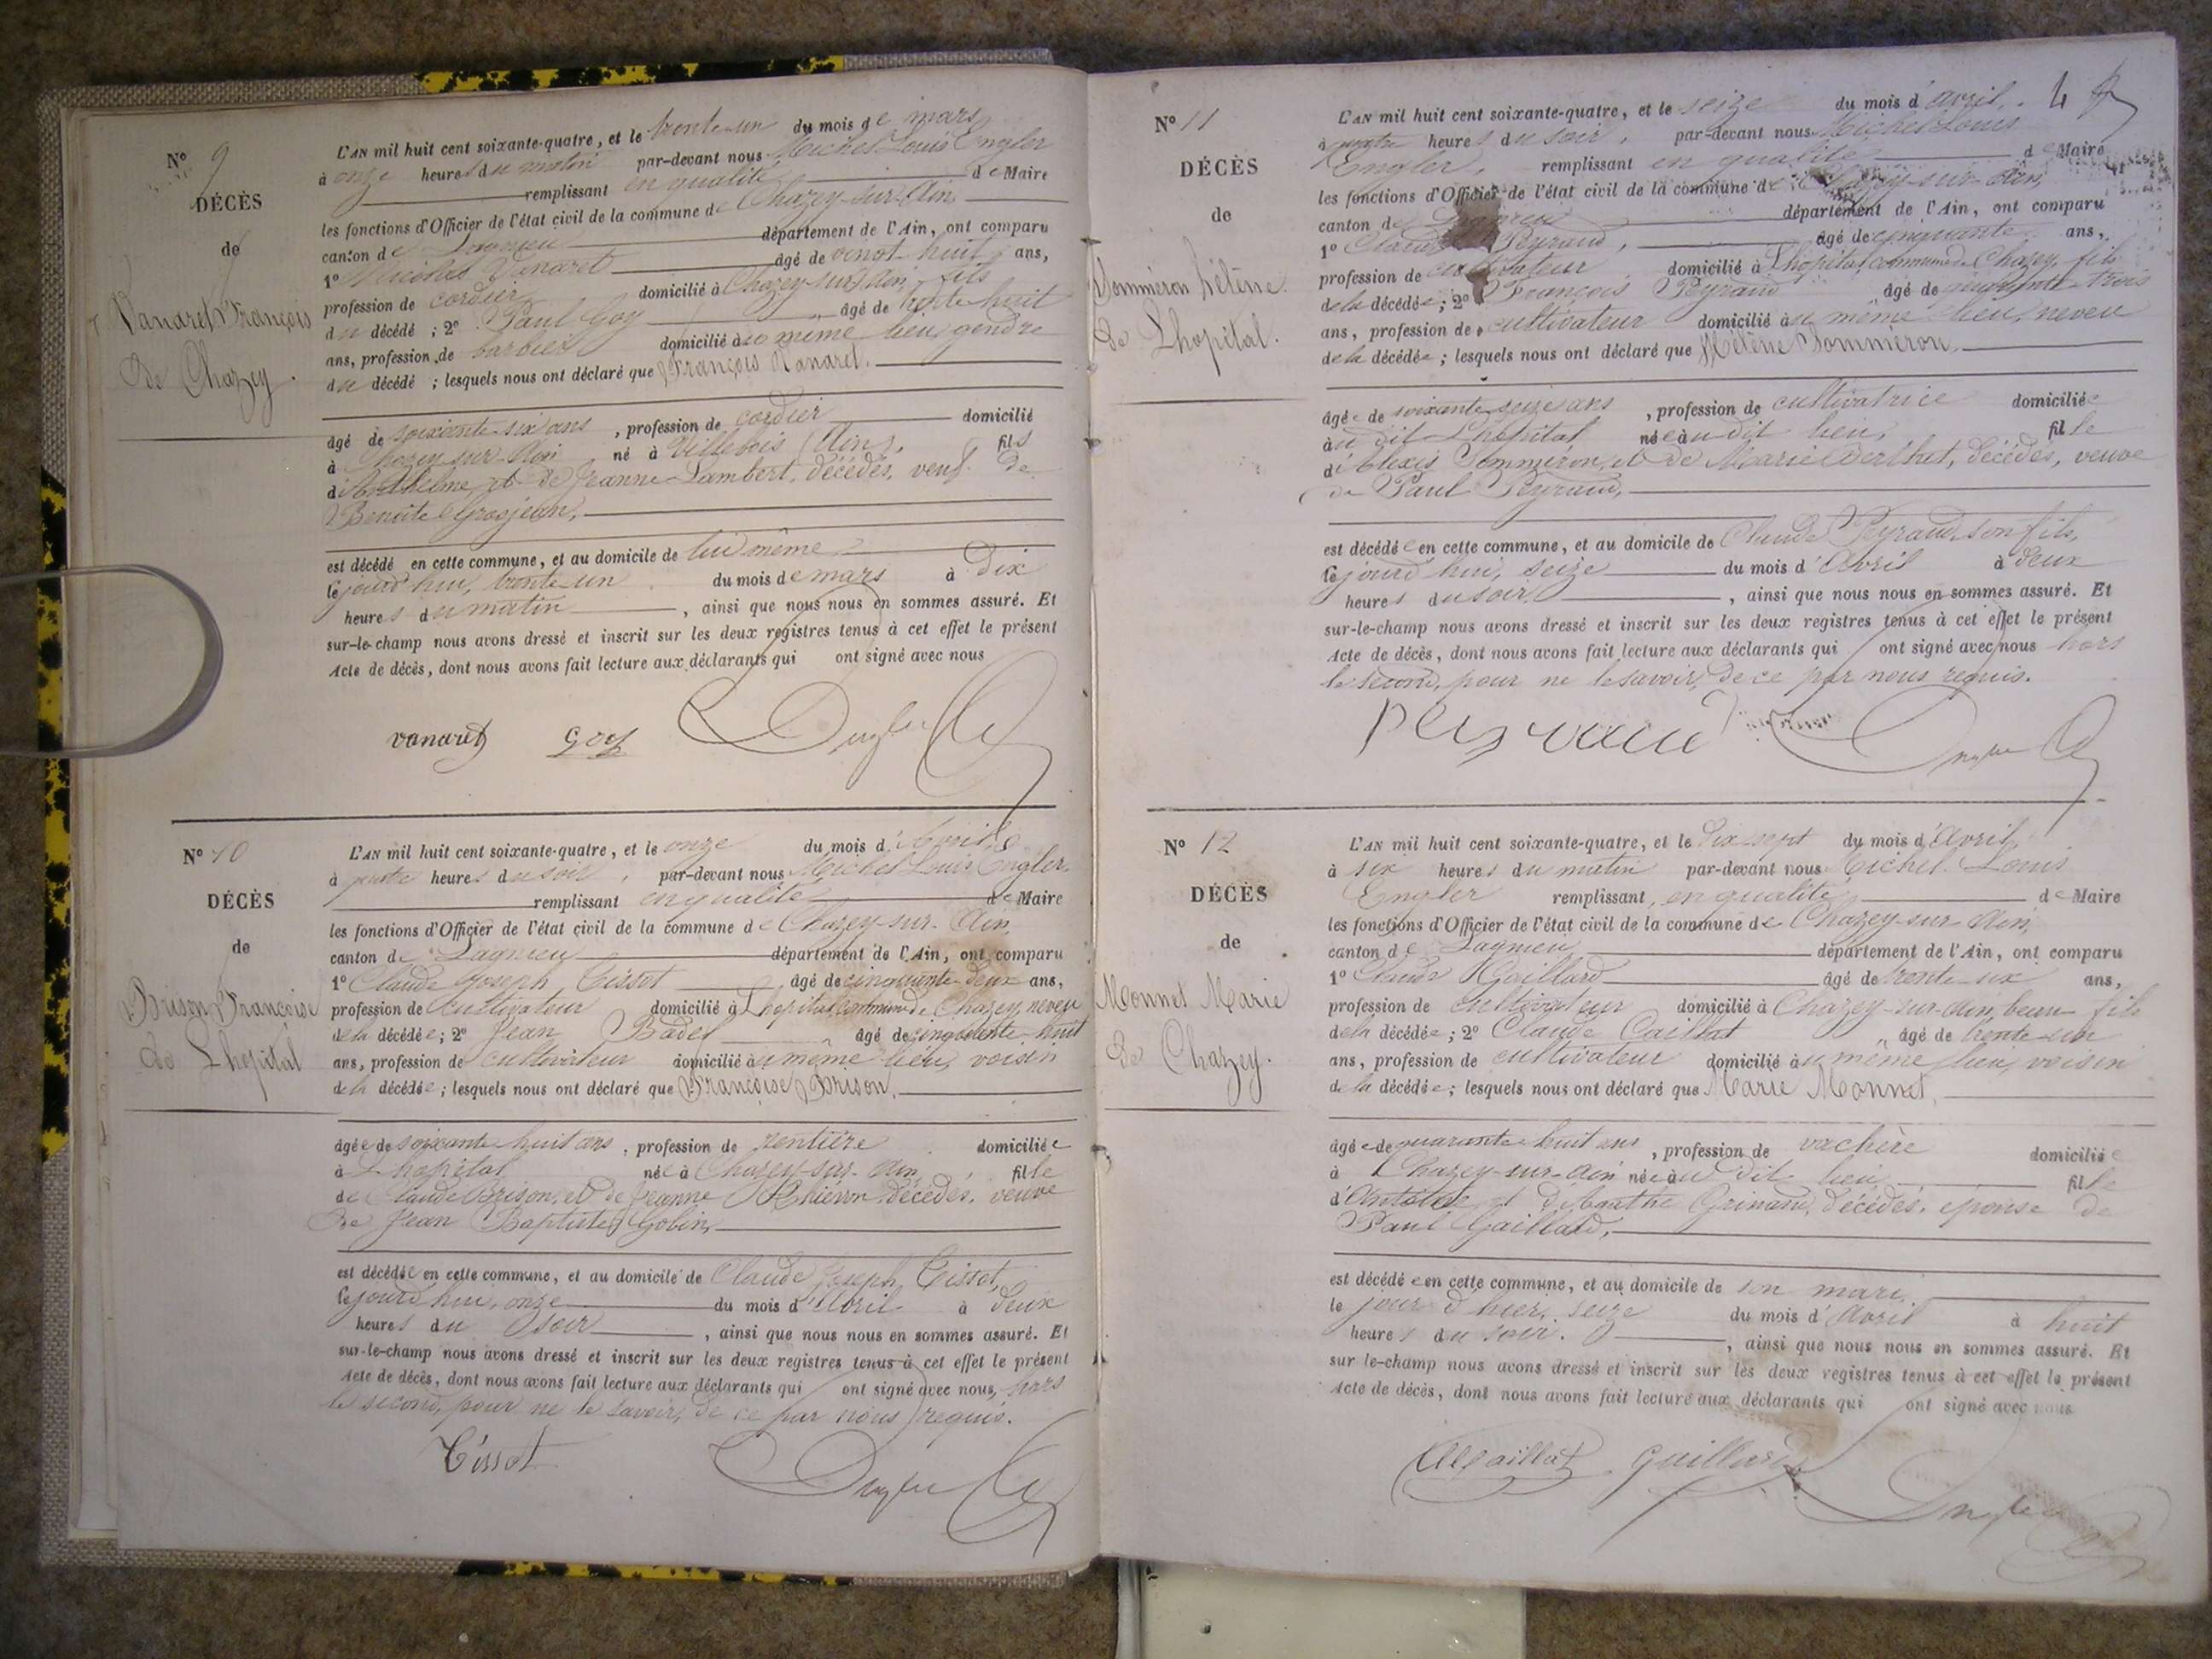 Nº 9
DÉCÈS
de
Vanaret François
de Chazey.
L'AN mil huit cent soixante-quatre, et le trente-un du mois de mars
à onze heures du matin par-devant nous Michel Louis Engler
remplissant en qualité de Maire
les fonctions d'Officier de l'état civil de la commune de Chazey-sur-Ain,
canton de Lagnieu département de l'Ain, ont comparu
1º Vanaret âgé de vingt huit ans,
profession de cordier domicilié à Chazey-sur-Ain, fils
du décédé ; 2º Paul Goy âgé de trente huit
ans, profession de barbier domicilié au même lieu, gendre
du décédé ; lesquels nous ont déclaré que François Vanaret.
âgé de soixante-six ans, profession de cordier domicilié
à Chazey-sur-Ain né à Villebois (Ain), fils
d'Anthelme, et de Jeanne Lambert, décédés, veuf de
Benoîte Grosjean,
est décédé en cette commune, et au domicile de lui même
le jourd'hui, trente-un du mois de mars à dix
heures du matin, ainsi que nous nous en sommes assuré. Et
sur-le-champ nous avons dressé et inscrit sur les deux registres tenus à cet effet le présent
Acte de décès, dont nous avons fait lecture aux déclarants qui ont signé avec nous
vanaret goy Engler
Nº 10
DÉCÈS
de
Brison Françoise
de Lhopital
L'AN mil huit cent soixante-quatre, et le onze du mois d'Avril,
à quatre heures du soir, par-devant nous Michel Louis Engler,
remplissant en qualité de Maire
les fonctions d'Officier de l'état civil de la commune de Chazey-sur-Ain,
canton de Lagnieu département de l'Ain, ont comparu
1º Claude Joseph Tissot âgé de cinquante deux ans,
profession de cultivateur domicilié à Lhopital commune de Chazey, neveu
de la décédée ; 2º Jean Badel âgé de cinquante-huit
ans, profession de cultivateur domicilié au même lieu, voisin
de la décédée ; lesquels nous ont déclaré que Françoise Brison,
âgée de soixante huit ans, profession de rentière domiciliée
à Lhopital née à Chazey-sur-Ain, fille
de Claude Brison, et de Jeanne décédés, veuve
de Jean Baptiste Gobin,
est décédée en cette commune, et au domicile de Claude Joseph Tissot,
le jourd'hui, onze du mois d'Avril à deux
heures du soir, ainsi que nous nous en sommes assuré. Et
sur-le-champ nous avons dressé et inscrit sur les deux registres tenus à cet effet le présent
Acte de décès, dont nous avons fait lecture aux déclarants qui ont signé avec nous, hors
le second, pour ne le savoir, de ce par nous requis.
Tissot Engler
4
Nº 11
DÉCÈS
de
Sommeron Hélène
de Lhopital.
L'AN mil huit cent soixante-quatre, et le seize du mois d'avril,
à quatre heures du soir, par-devant nous Michel Louis
Engler, remplissant en qualité de Maire
les fonctions d'Officier de l'état civil de la commune de Chazey-sur-Ain,
canton de Lagnieu département de l'Ain, ont comparu
1º Claude Peyraud, âgé de cinquante ans,
profession de cultivateur domicilié à Lhopital, commune de Chazey, fils
de la décédée ; 2º François Peyraud âgé de trois
ans, profession de cultivateur domicilié au même lieu, neveu
de la décédée ; lesquels nous ont déclaré que Hélène Sommeron,
âgée de soixante-seize ans, profession de cultivatrice domiciliée
au dit Lhopital née au dit lieu, fille
d'Alexis Sommeron, et de Marie Berthet, décédés, veuve
de Paul Peyraud,
est décédée en cette commune, et au domicile de Claude Peyraud, son fils,
le jourd'hui, seize du mois d'Avril à deux
heures du soir, ainsi que nous nous en sommes assuré. Et
sur-le-champ nous avons dressé et inscrit sur les deux registres tenus à cet effet le présent
Acte de décès, dont nous avons fait lecture aux déclarants qui ont signé avec nous hors
le second, pour ne le savoir, de ce par nous requis.
peyraud Engler
Nº 12
DÉCÈS
de
Monnet Marie
de Chazey.
L'AN mil huit cent soixante-quatre, et le dix sept du mois d'Avril,
à six heures du matin par-devant nous Michel Louis
Engler remplissant en qualité de Maire
les fonctions d'Officier de l'état civil de la commune de Chazey-sur-Ain,
canton de Lagnieu département de l'Ain, ont comparu
1º Claude Gaillard âgé de trente-six ans,
profession de cultivateur domicilié à Chazey-sur-Ain, beau-fils
de la décédée ; 2º Claude Caillat âgé de trente-un
ans, profession de cultivateur domicilié au même lieu, voisin
de la décédée ; lesquels nous ont déclaré que Marie Monnet,
âgée de quarante-huit ans, profession de vachère domiciliée
à Chazey-sur-Ain née au dit lieu, fille
d'Antoine et de Marthe décédés, épouse de
Paul Gaillard,
est décédée en cette commune, et au domicile de son mari,
le jour d'hier, seize du mois d'Avril à huit
heures du soir, ainsi que nous nous en sommes assuré. Et
sur le-champ nous avons dressé et inscrit sur les deux registres tenus à cet effet le présent
Acte de décès, dont nous avons fait lecture aux déclarants qui ont signé avec nous
Caillat Gaillard Engler